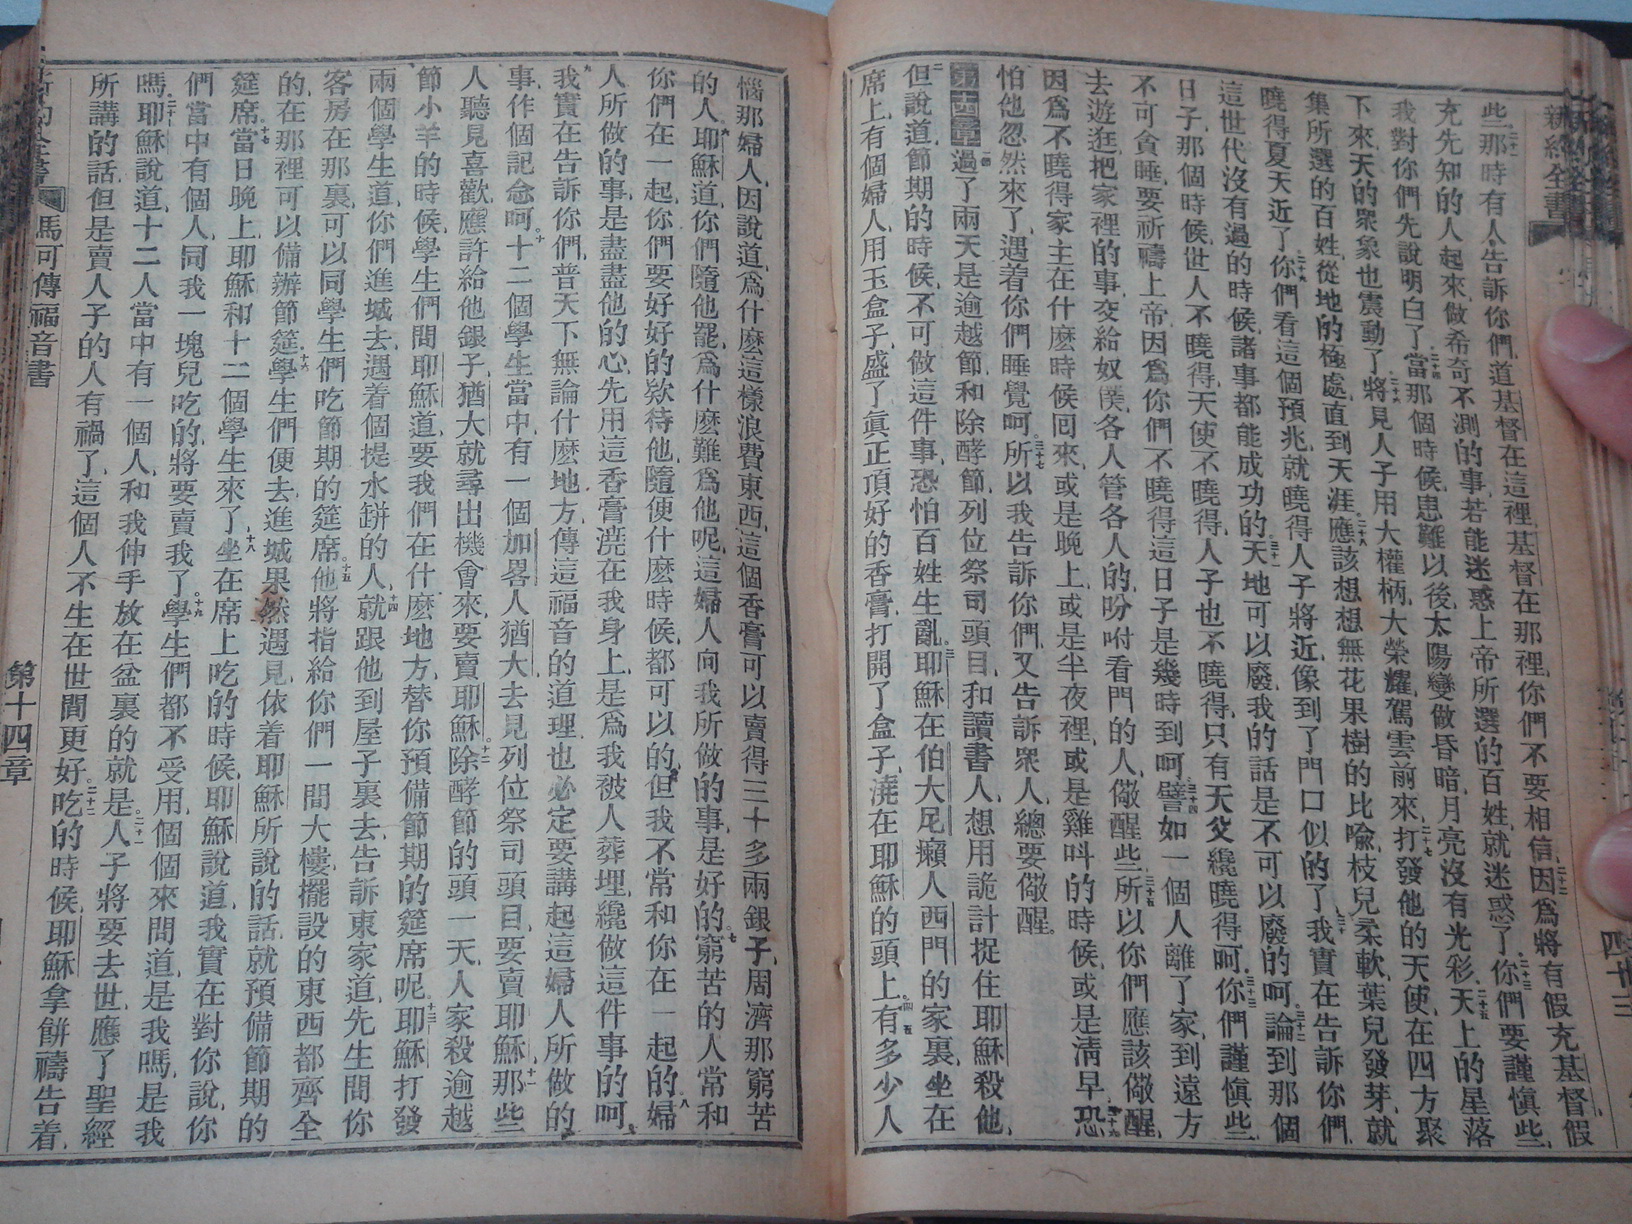 新約全書
些、那時有人告訴你們道、基督在這裡、基督在那裡、你們不要相信、因爲將有假充基督、假
充先知的人起來、做希奇不測的事、若能迷惑上帝所選的百姓、就迷惑了、你們要謹愼些、
我對你們先說明白了、當那個時候、患難以後、太陽變做昏暗、月亮沒有光彩、天上的星落
下來、天的衆象也震動了、將見人子用大權柄、大榮耀、駕雲前來、打發他的天使、在四方聚
集所選的百姓、從地的極處、直到天涯、應該想想無花果樹的比喩、枝兒柔軟、葉兒發芽、就
曉得夏天近了、你們看這個預兆、就曉得人子將近、像到了門口似的了、我實在告訴你們、
這世代沒有過的時候、諸事都能成功的、天地可以廢、我的話是不可以廢的呵、論到那個
日子、那個時候、世人不曉得、天使不曉得、人子也不曉得、只有天父纔曉得呵、你們謹愼些、
不可貪睡、要祈禱上帝、因爲你們不曉得這日子是幾時到呵、譬如一個人離了家、到遠方
去遊逛、把家裡的事、交給奴僕、各人管各人的、吩咐看門的人、儆醒些、所以你們應該儆醒、
因爲不曉得家主在什麼時候回來、或是晚上、或是半夜裡、或是雞呌的時候、或是淸早、恐
怕他忽然來了、遇着你們睡覺呵、所以我告訴你們、又告訴衆人、總要儆醒。
第十四章 過了兩天、是逾越節、和除酵節、列位祭司頭目、和讀書人、想用詭計捉住耶穌殺他、
但說道、節期的時候、不可做這件事、恐怕百姓生亂、耶穌在伯大尼、癩人西門的家裏、坐在
席上、有個婦人、用玉盒子、盛了眞正頂好的香膏、打開了盒子、澆在耶穌的頭上、有多少人
惱那婦人、因說道、爲什麼這樣浪費東西、這個香膏可以賣得三十多兩銀子、周濟那窮苦
的人、耶穌道、你們隨他罷、爲什麼難爲他呢、這婦人向我所做的事、是好的、窮苦的人常和
你們在一起、你們要好好的欵待他、隨便什麼時候、都可以的、但我不常和你在一起的、婦
人所做的事、是盡盡他的心、先用這香膏澆在我身上、是爲我被人葬埋、纔做這件事的呵、
我實在告訴你們、普天下無論什麼地方、傳這福音的道理、也必定要講起這婦人所做的
事、作個記念呵、十二個學生當中、有一個加畧人猶大、去見列位祭司頭目、要賣耶穌、那些
人聽見喜歡、應許給他銀子、猶大就尋出機會來、要賣耶穌、除酵節的頭一天、人家殺逾越
節小羊的時候、學生們問耶穌道、要我們在什麼地方、替你預備節期的筵席呢、耶穌打發
兩個學生道、你們進城去、遇着個提水缾的人、就跟他到屋子裏去、告訴東家道、先生問你
客房在那裏、可以同學生們吃節期的筵席、他將指給你們一間大樓、擺設的東西都齊全
的、在那裡可以備辦節筵、學生們便去、進城果然遇見、依着耶穌所說的話、就預備節期的
筵席、當日晚上、耶穌和十二個學生來了、坐在席上吃的時候、耶穌說道、我實在對你說、你
們當中有個人、同我一塊兒吃的、將要賣我了、學生們都不受用、個個來問道、是我嗎、是我
嗎、耶穌說道、十二人當中有一個人、和我伸手放在盆裏的就是、人子將要去世、應了聖經
所講的話、但是賣人子的人有禍了、這個人不生在世間更好、吃的時候、耶穌拿餅禱告着、
馬可傳福音書 第十四章